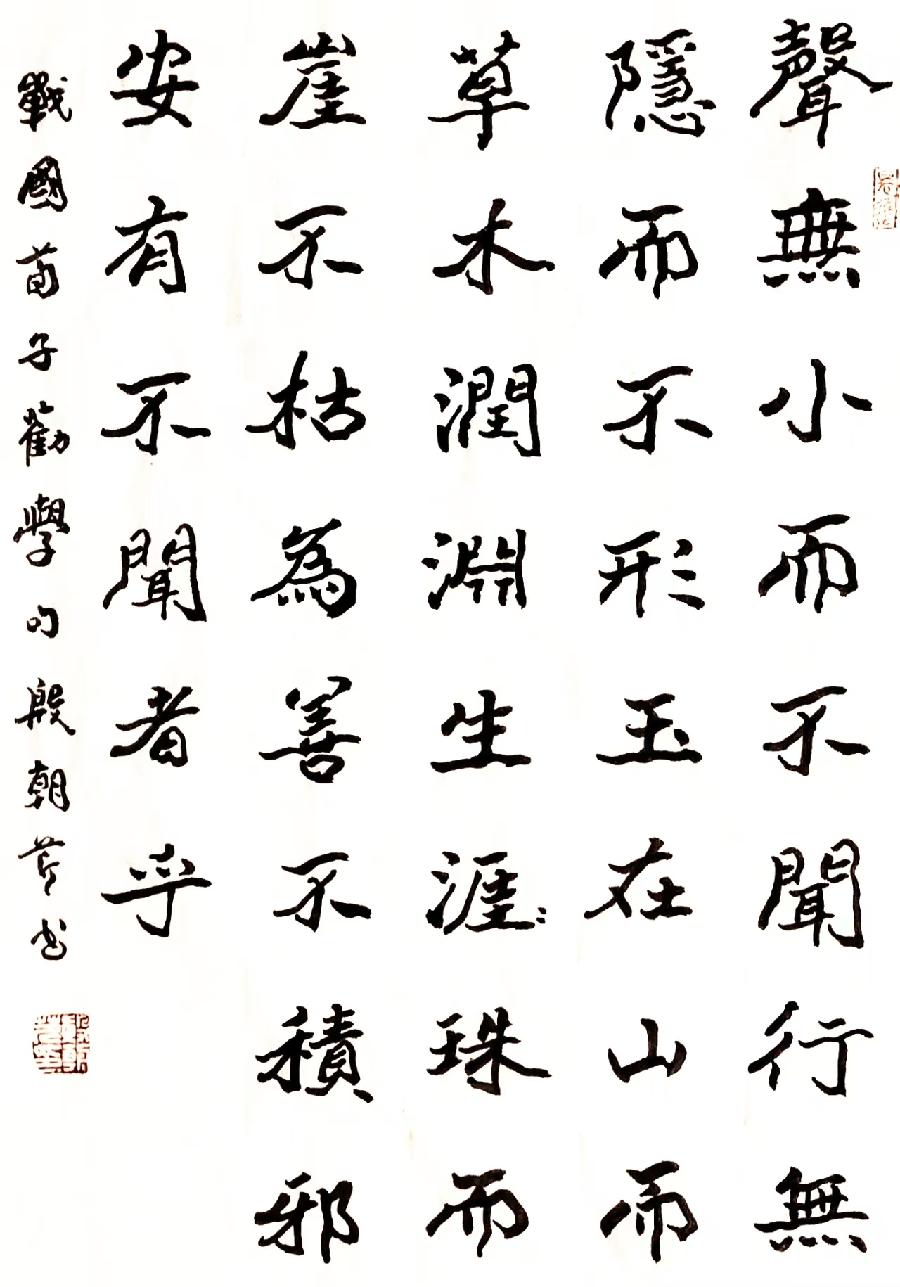 聲無小而不聞行無
隱而不形玉在山而
草木潤淵生涯珠而
崖不枯為善不積邪
安有不聞者乎
戰國荀子勸學句殷朝书